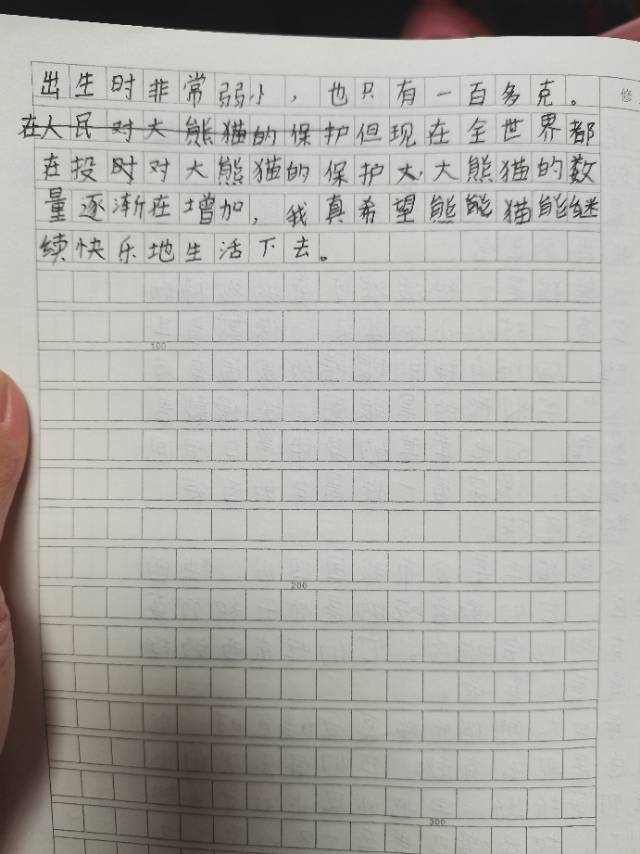 出生时非常弱小，也只有一百多克。
在人民对大熊猫的保护但现在全世界都
在投时对大熊猫的保护大，大熊猫的数
量逐渐在增加，我真希望熊能猫能继
续快乐地生活下去。
修
100
200
300